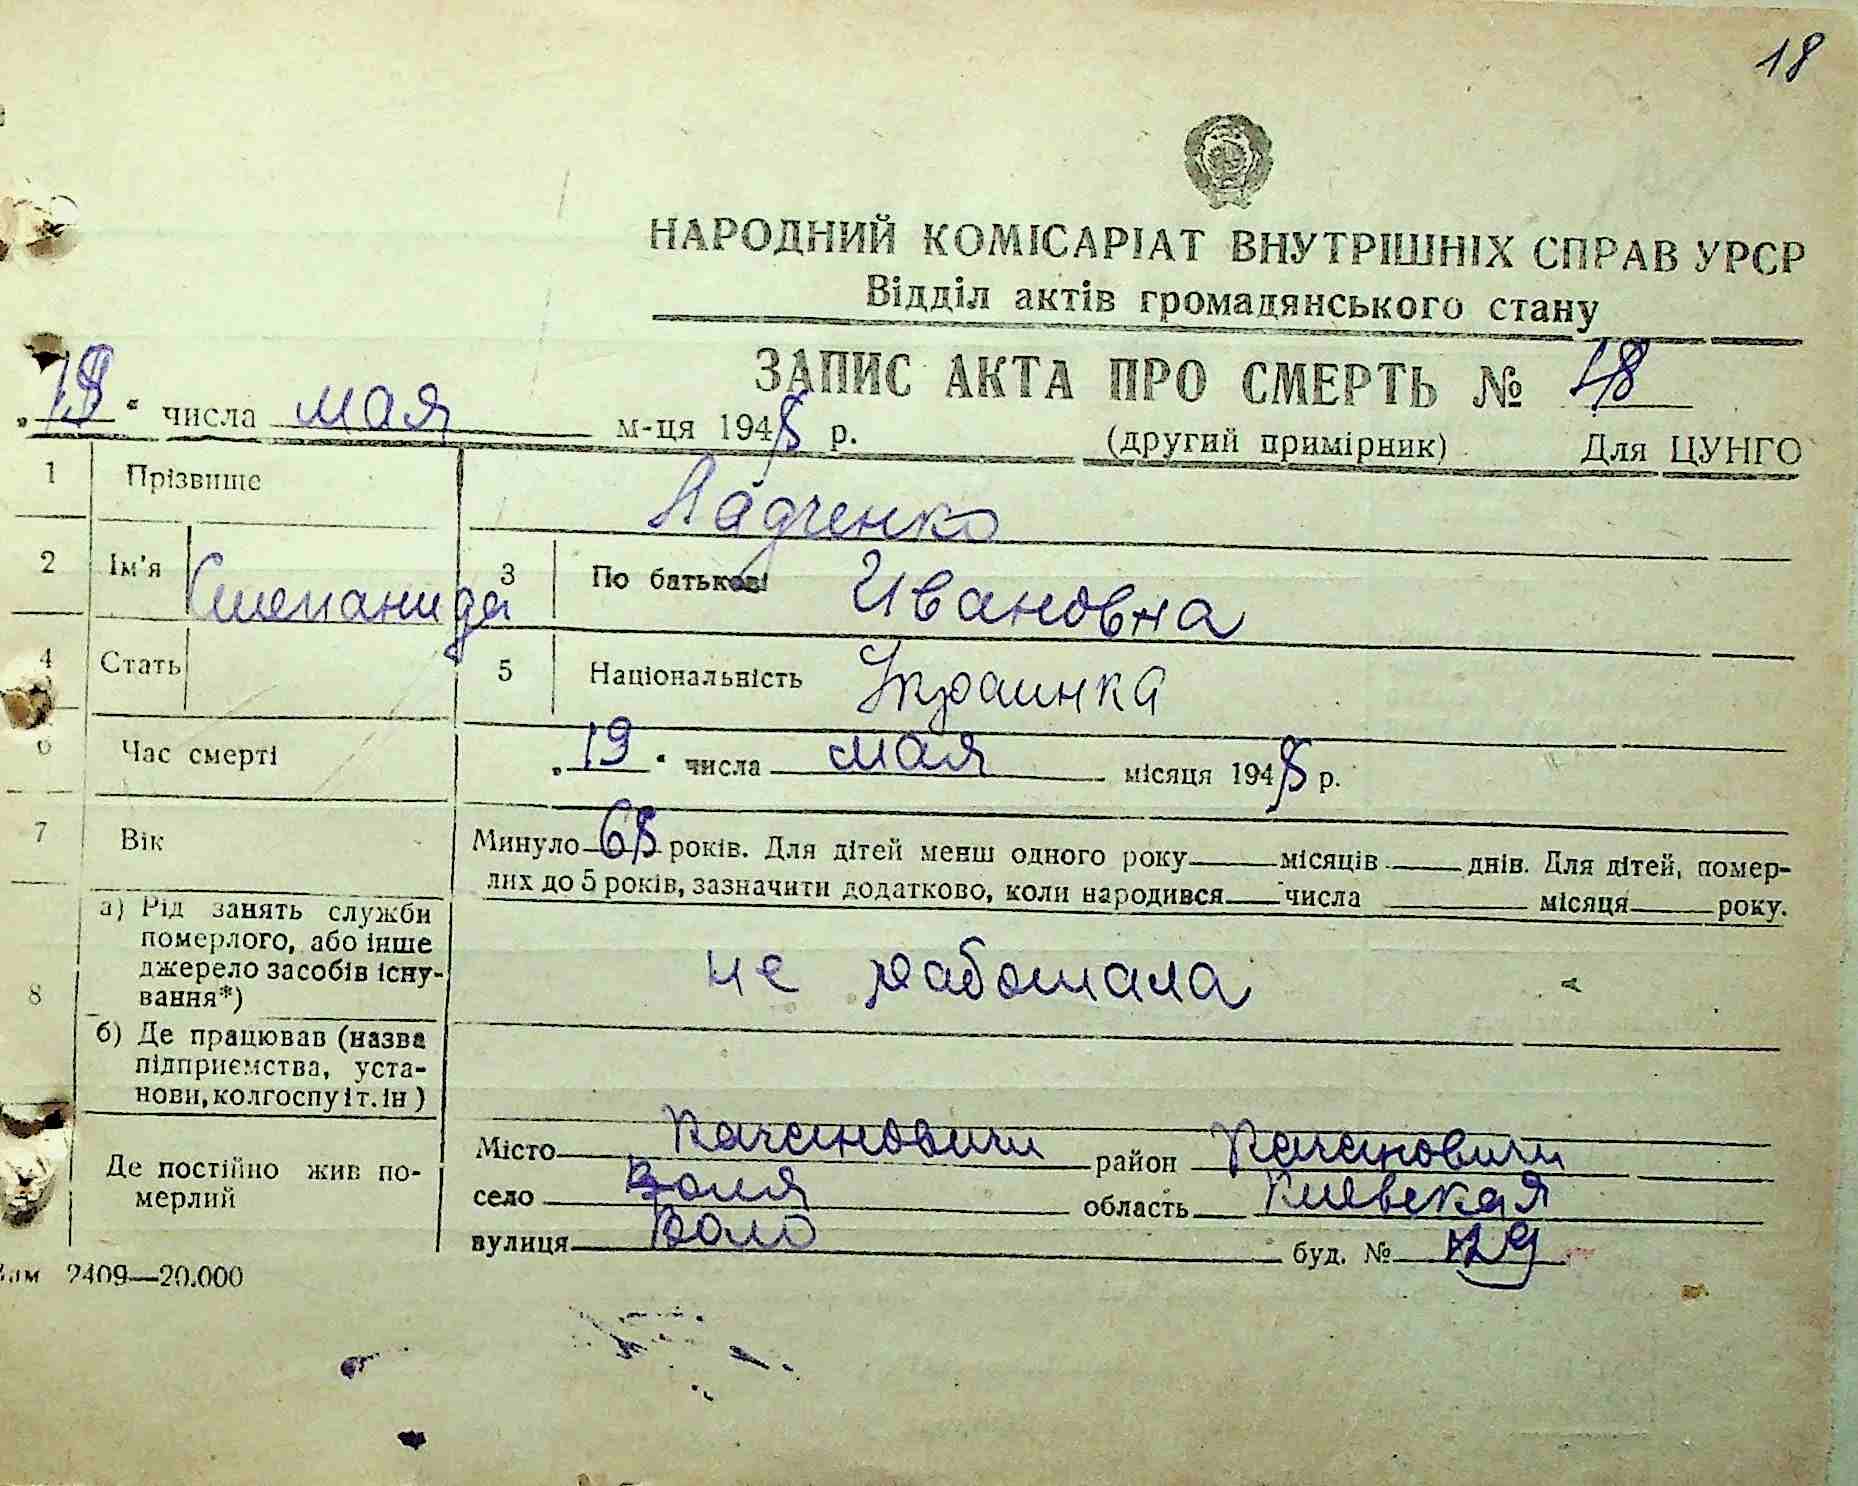 18
НАРОДНИЙ КОМІСАРІАТ ВНУТРІШНІХ СПРАВ УРСР
Відділ актів громадянського стану
ЗАПИС АКТА ПРО СМЕРТЬ № 18
„ “ числа мая м-ця 1945 р. (другий примірник) Для ЦУНГО
1 Прізвище Ладченко
2 Ім'я Степанида 3 По батькові Ивановна
4 Стать 5 Національність Украинка
6 Час смерті „19“ числа мая місяця 1945 р.
7 Вік Минуло 65 років. Для дітей менш одного року місяців днів. Для дітей, помер-
лих до 5 років, зазначити додатково, коли народився числа місяця року.
8 а) Рід занять служби
померлого, або інше
джерело засобів існу-
вання*)
не работала
б) Де працював (назва
підприємства, уста-
нови, колгоспу і т. ін)
Де постійно жив по-
мерлий
Місто Качановичи район Качановичи
село Воля область Киевская
вулиця буд. № 29
Зам 2409—20.000